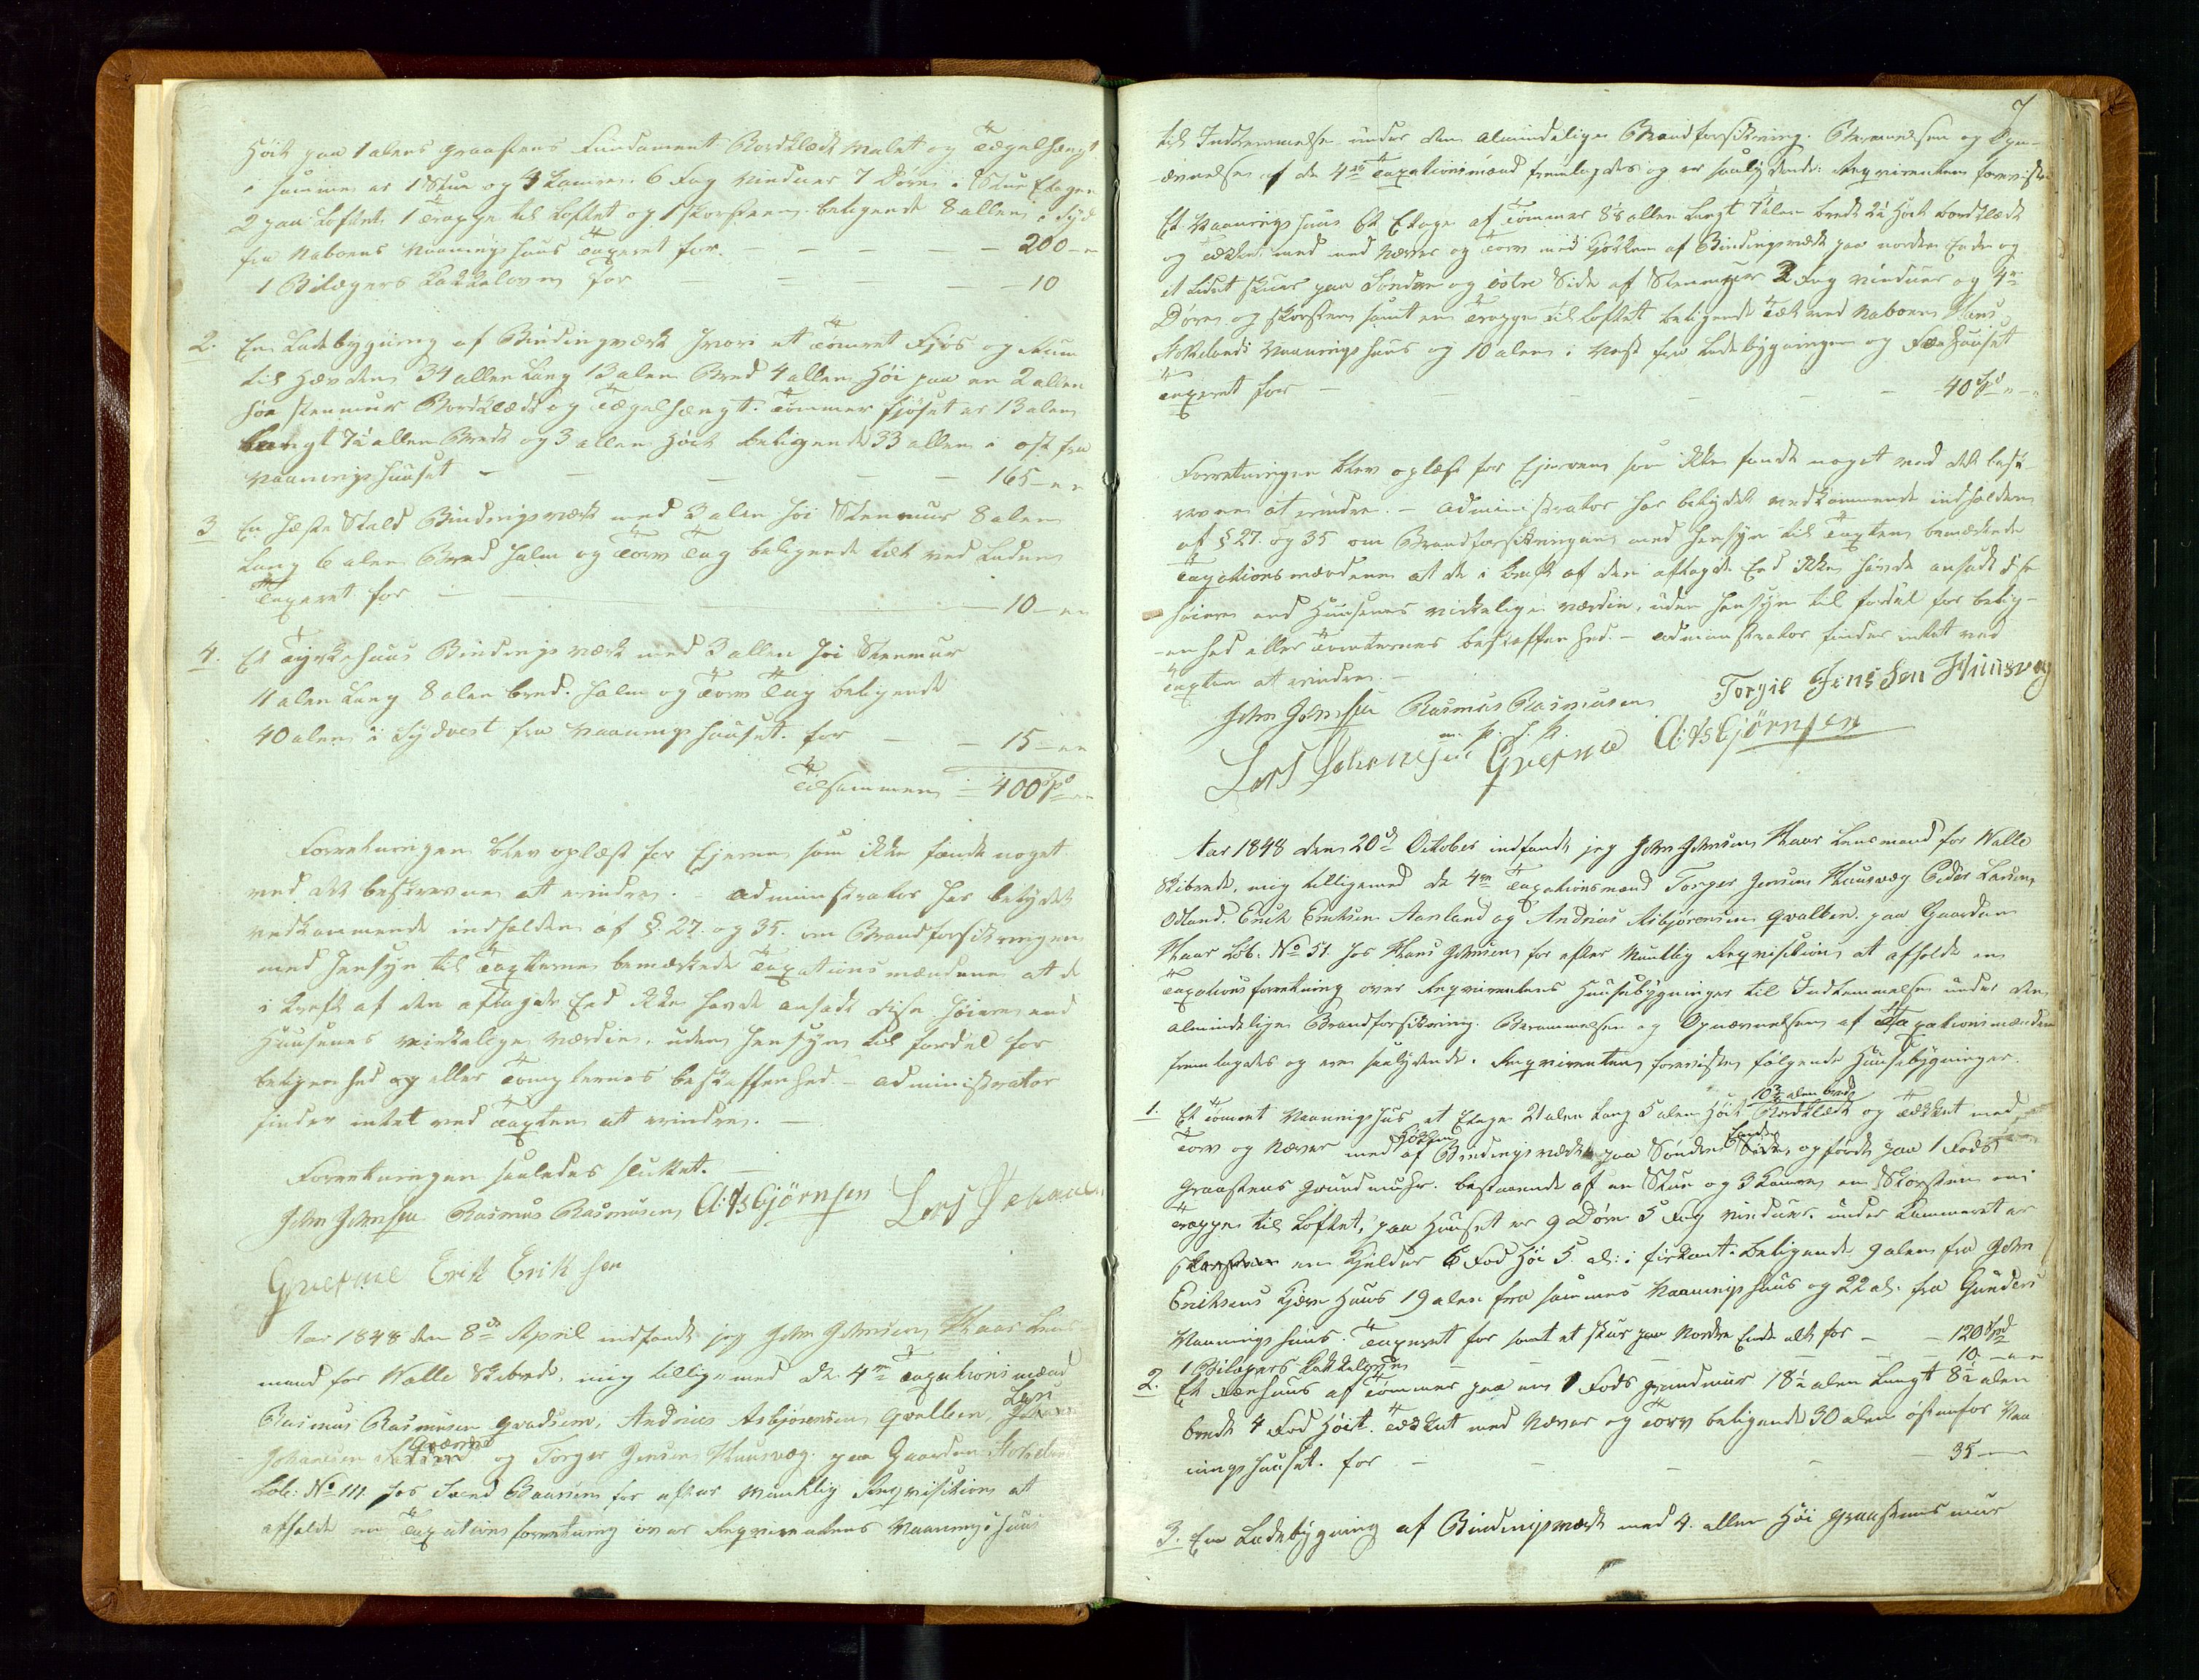 Høit paa 1 alens graastens Fundament Bordklædt Malet og Tægelhængt
i samme er 1 Stue og 4 Kamre 6 Fag Vinduer 7 Døre i Stue Etagen
2 paa Loftet 1 Trappe til Loftet og 1 skorsteen beligende 8 allen i Syd
fra Naboens Vaanings huus Taxeret for. — — — 200 – „
1 Bilægers Kakkeloven for — — — 10
2. En Ladebygning af Bindingværk hvori et Tømret Fjøs og Rum
til Høvden 34 allen Lang 13 alen Bred 4 allen Høi paa en 2 allen
høi stenmuur Bordklædt og Tægelhængt. Tømmer fjøset er 13 alen
Langt 7½ allen Bredt og 3 allen Høit beligende 33 allen i ost fra
Vaaningshuuset — — — 165 – „
3 En Heste Stald Bindingsværk med 3 alen høi Stenmuur 8 alen
Lang 6 alen Bred Halm og Torv Tag beligende tæt ved Laden
Taxeret for — — 10 – „
4. Et Tyrkehuus Bindingsværk med 3 allen høi Stenmur
11 alen Lang 8 alen bred. Halm og Torv Tag beligende
40 alen i Sydvest fra Vaanings huuset. for — — 15 – „
Tilsammen — 400 Spd
Forretningen blev oplæst for Ejeren som ikke fandt noget
ved det beskrevne at erindre. – Administrator har betydet
vedkommende indholden af §. 27. og 35. om Brandforsikringen
med hensyn til Taxterne bemærkede Taxationsmændene at de
i kraft af den aflagde Eed ikke havde ansadt disse høiere end
Huusenes virkelige værdie. uden hensyn til fordel for
beligenhed og eller Tomternes beskaffenhed – Administrator
finder intet ved Taxten at erindre. —
Forretningen saaledes sluttet. —
John Johnsen Rasmus Rasmusen A: Asbjörnsen Lars Johanne
Gvefme Erik Erik sen
Aar 1848 den 8de April indfandt jeg John Johnsen Haar Lens
mand for Walle Skibrede, mig tilligemed de 4re Taxationsmænd
Rasmus Rasmusen Andreas Asbjørensen Qvalben, Lars
Johannesen og Torger Jensen Huusvæg paa Gaarden
Løb: No 111 hos Baarsen for efter Mundtlig Reqvisition at
afholde en Taxationsforretning over Reqvirentens Vaanings huus
7
til Indtemmelse under den almindelige Brandforsikring. Berammelsen og Opn-
ævnelsen af de 4re Taxationsmænd fremlagdes og er saalydende: Reqvirenten foreviste
Et Vaanings huus Et Etage af Tømmer 8½ allen Langt 7½ alen bredt 2½ Høit bordklædt
og Tækket med Næver og Torv med Kjøkken af Bindingsværk paa nordre Ende og
et Lidet skuur paa Søndre og østre Side af Stenmuur 2 Fag vinduer og 4re
Døre og skorsteen samt en Trappe til Loftet beligende Tæt ved Naboen
Vaanings huus og 10 alen i Vest fra Ladebygningen og Fæehuuset
Taxeret for — — — 40 Spd „ – „
Forretningen blev oplæst for Ejeren som ikke fandt noget ved det besk-
revne at erindre. – Administrator har betydet vedkommende indholden
af § 27. og 35 om Brandforsikringen med hensyn til Taxten bemærkede
Taxationsmændene at de i kraft af den aflagde Eed ikke havde ansadt dise
høiere end Huusenes virkelige værdie, uden hensyn til fordel for belig-
enhed eller Tomternes beskaffenhed. – Administrator finder intet ved
Taxten at erindre. —
John Johnsen Rasmus Rasmusen Torgil Jens Sen Huusvæg
m. p. P.
Lars Johannesen Gvefme A: Asbjörnsen
Aar 1848 den 20de October indfandt jeg John Johnsen Haar Lensmand for Walle
Skibrede, mig tilligemed de 4re Taxationsmænd Torger Jensen Huusvæg Peder Larsen
Odland. Erich Erichsen Aarsland og Andreas Asbjørensen Qvalben. paa Gaarden
Haar Løb. No 51. hos Hans Johnsen for efter Mundtlig Reqvisition at afholde en
Taxationsforretning over Reqvirentens Huusebygninger til Indtemmelse under den
almindelige Brandforsikring. Berammelsen og Opnævnelsen af Taxationsmændene
fremlagdes og ere saalydende. Reqvirenten foreviste følgende Huusebygninger.
10¾ alen bredt
1. Et Tømret Vaaningshus et Etage 21 alen Lang 5 alen Høit Bordklædt og Tækket med
Torv og Næver med Kjøkken af Bindingsværk paa Søndre Side, opførdt paa 1 Fods
graastens grundmuur. bestaaende af en Stue og 3 Kamre en Skorsteen en
Trappe til Loftet, paa Huuset er 9 Døre 5 Fag vinduer. under Kammeret er
en Kjelder 6 Fod Høi 5. al: i firkant. Beligende 9 alen fra John
Erichsens Kjøre Huus 19 alen fra sammes Vaanings huus og 22 al. fra Gunders
Vaanings huus. Taxeret for samt et skur paa Nordre Ende alt for — — 120 Spd
1 Bilægers Kakkeloven — — — 10 – „
2. Et Fæehuus af Tømmer paa en 1 Fods grundmur 18½ alen Langt 8½ alen
bredt 4 Fod Høit. Tækket med Næver og Torv beligende 30 alen østenfor Vaa
nings huuset. for — — — 35 —
3. En Ladebygning af Bindingsværk med 4. allen Høi graastens muur